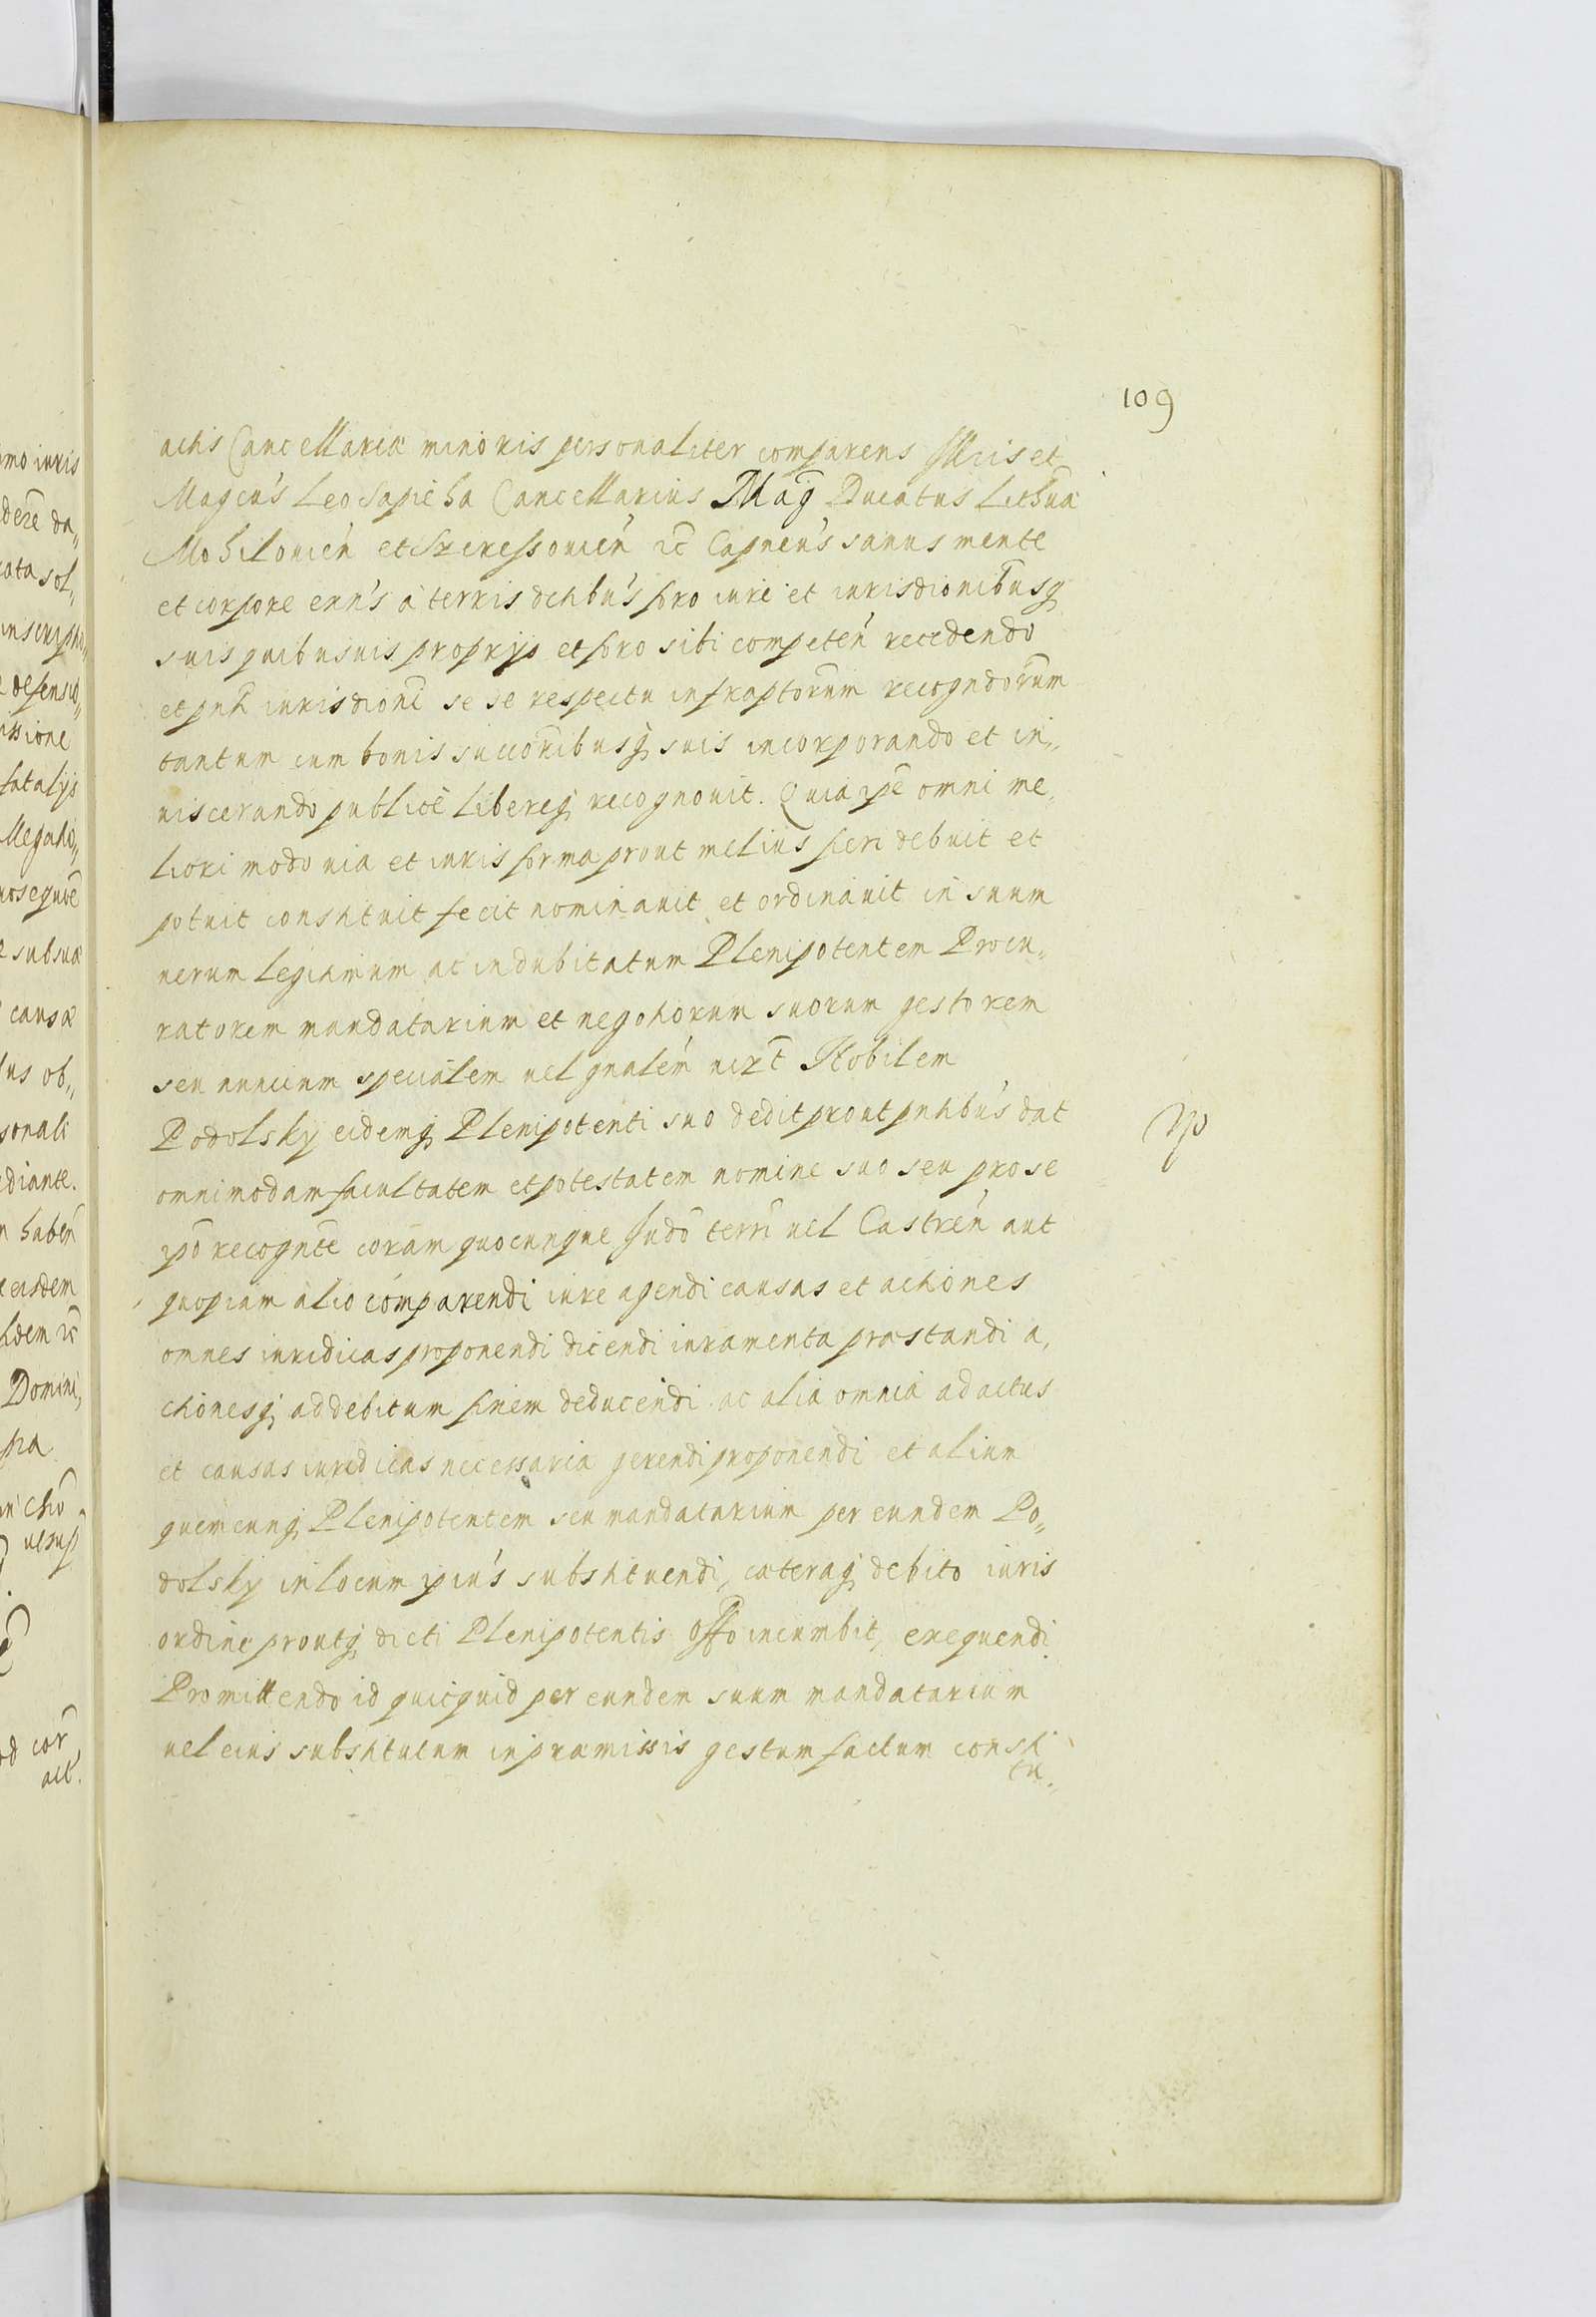 109
actis Cancellariæ minoris personaliter comparens Illris et
Magcus Leo Sapieha Cancellarius Mag Ducatus Lithua
Mohilouien et Szeressouien zc Capneus sanus mente
et corpore exns a terris dictibus foro iure et iurisdionibusq
suis quibusuis proprys et foro sibi competen recedendo
et pnti iurisdioni se se respectu infraptorum recogndorum
tantum cum bonis succoribusq suis incorporando et in„
uiscerando publice libereq recognouit. Quia ipe omni me„
liori modo uia et iuris forma prout melius fieri debuit et
potuit constituit fecit nominauit et ordinauit in suum
uerum legitimum ac indubitatum Plenipotentem Procu„
ratorem mandatarium et negotiorum suorum gestorem
seu nuncium specialem uel gnalem uizt Nobilem
Podolsky eidemq Plenipotenti suo dedit prout pntibus dat
omnimodam facultatem et potestatem nomine suo seu pro se
ipo recognte coram quocunque Judo terri uel Castren aut
quopiam alio comparendi iure agendi causas et actiones
omnes iuridicas proponendi dicendi iuramenta præstandi a„
ctionesq ad debitum finem deducendi ac alia omnia ad actus
et causas iuridicas necessaria gerendi proponendi et alium
quemcunq Plenipotentem seu mandatarium per eundem Po„
dolsky in locum ipius substituendi, cæteraq debito iuris
ordine proutq dicti Plenipotentis offo incumbit, exequendi.
Promittendo id quicquid per eundem suum mandatarium
uel eius substitutum in præmissis gestum factum consti
tu„